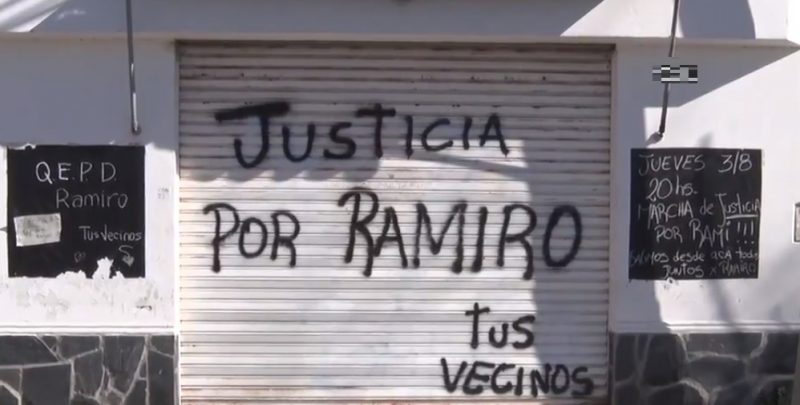 Q.E.P.D.
Ramiro
Tus Vecinos
JUSTICIA
POR RAMIRO
tus
VECINOS
JUEVES 3/8
20hs.
MARCHA de JUSTICIA
POR RAMI !!!
desde ACA todos
JUNTOS x RAMIRO